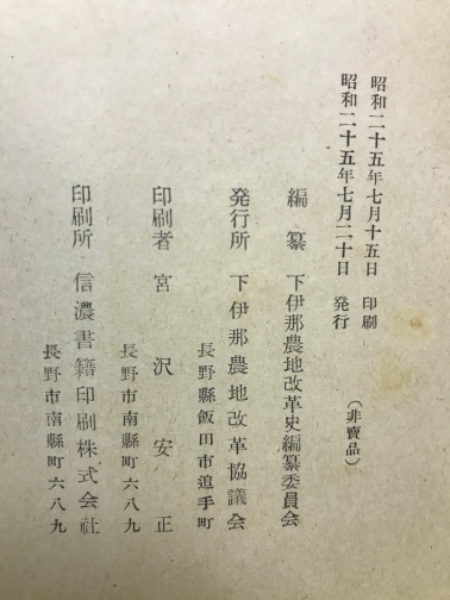 昭和二十五年七月十五日 印刷
昭和二十五年七月二十日 発行
(非賣品)
編纂 下伊那農地改革史編纂委員会
発行所 下伊那農地改革協議会
長野縣飯田市追手町
印刷者 宮沢安正
長野市南縣町六八九
印刷所 信濃書籍印刷株式会社
長野市南縣町六八九